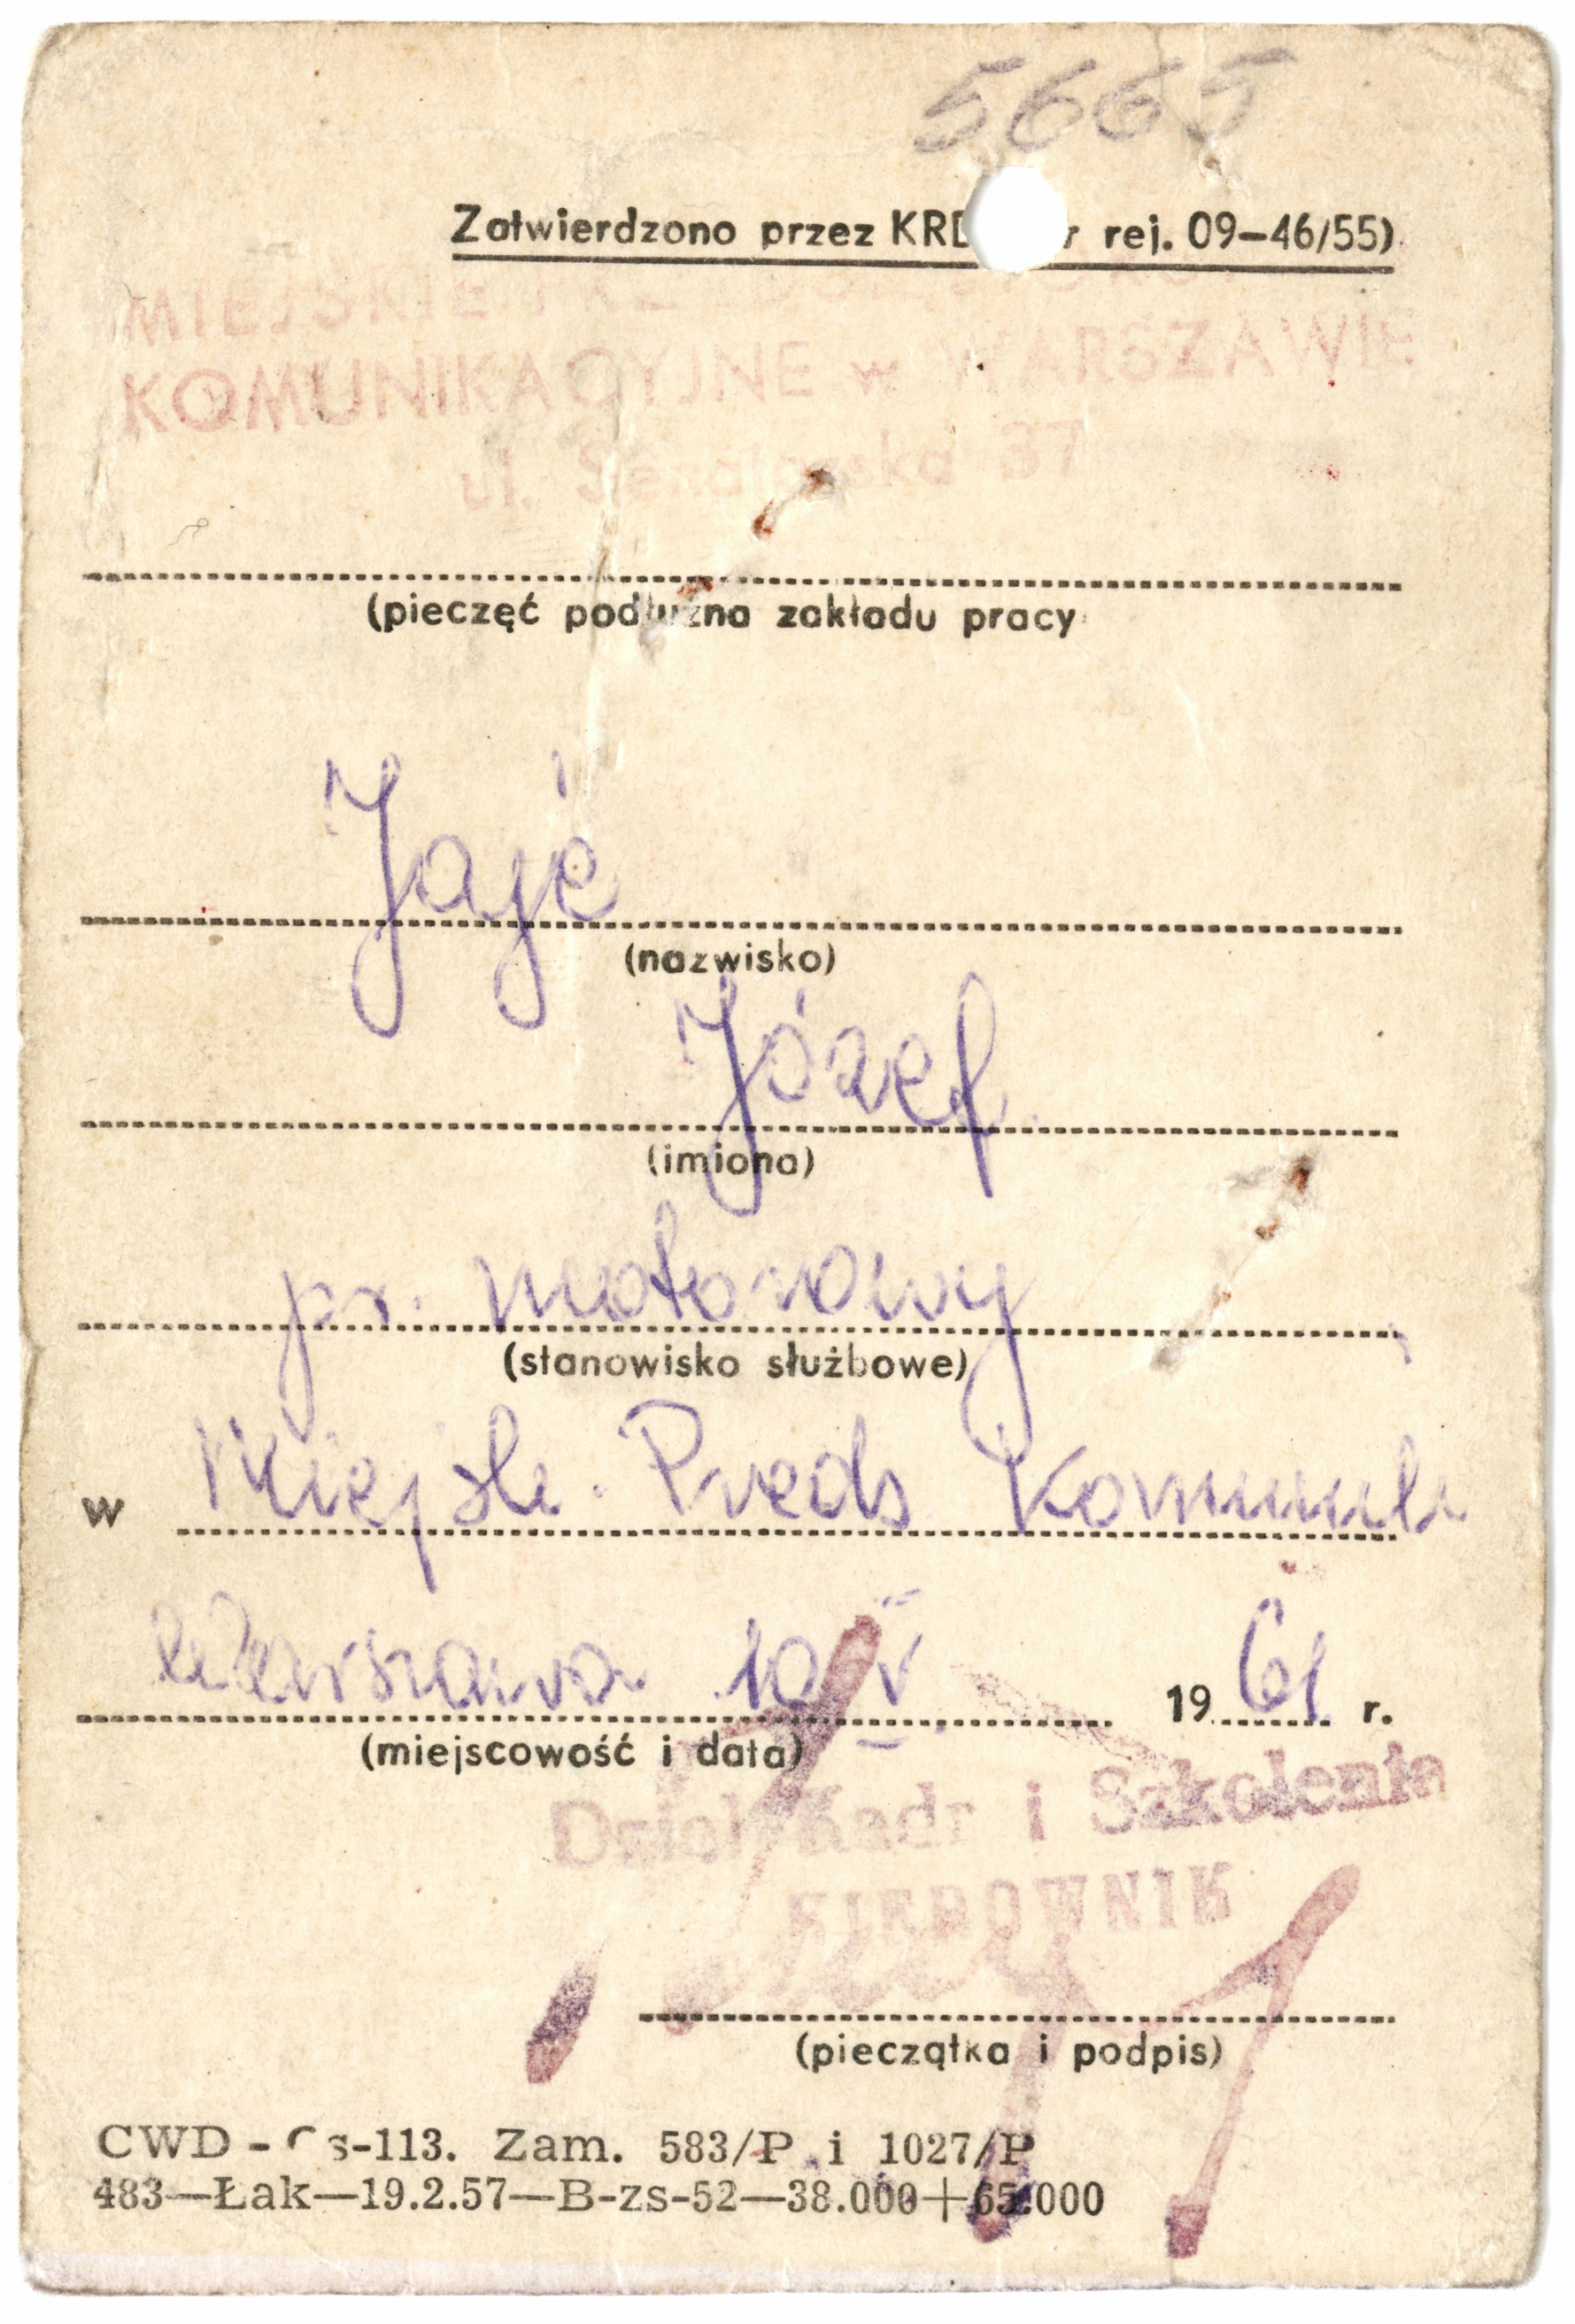 5665
Zatwierdzono przez KRD r rej. 09-46/55)
MIEJSKIE
KOMUNIKACYJNE w WARSZAWIE
ul. Senatorska 37
(pieczęć podłużna zakładu pracy
Jajé
(nazwisko)
Józef
(imiona)
pr. motorowy
(stanowisko służbowe)
w Miejsk. Przeds Komunik
Warszawa 10 V 1961 r.
(miejscowość i data)
Dział Kadr i Szkolenia
KIEROWNIK
(pieczątka i podpis)
CWD - s-113. Zam. 583/P i 1027/P
483—Łak—19.2.57—B-zs-52—38.000+65.000